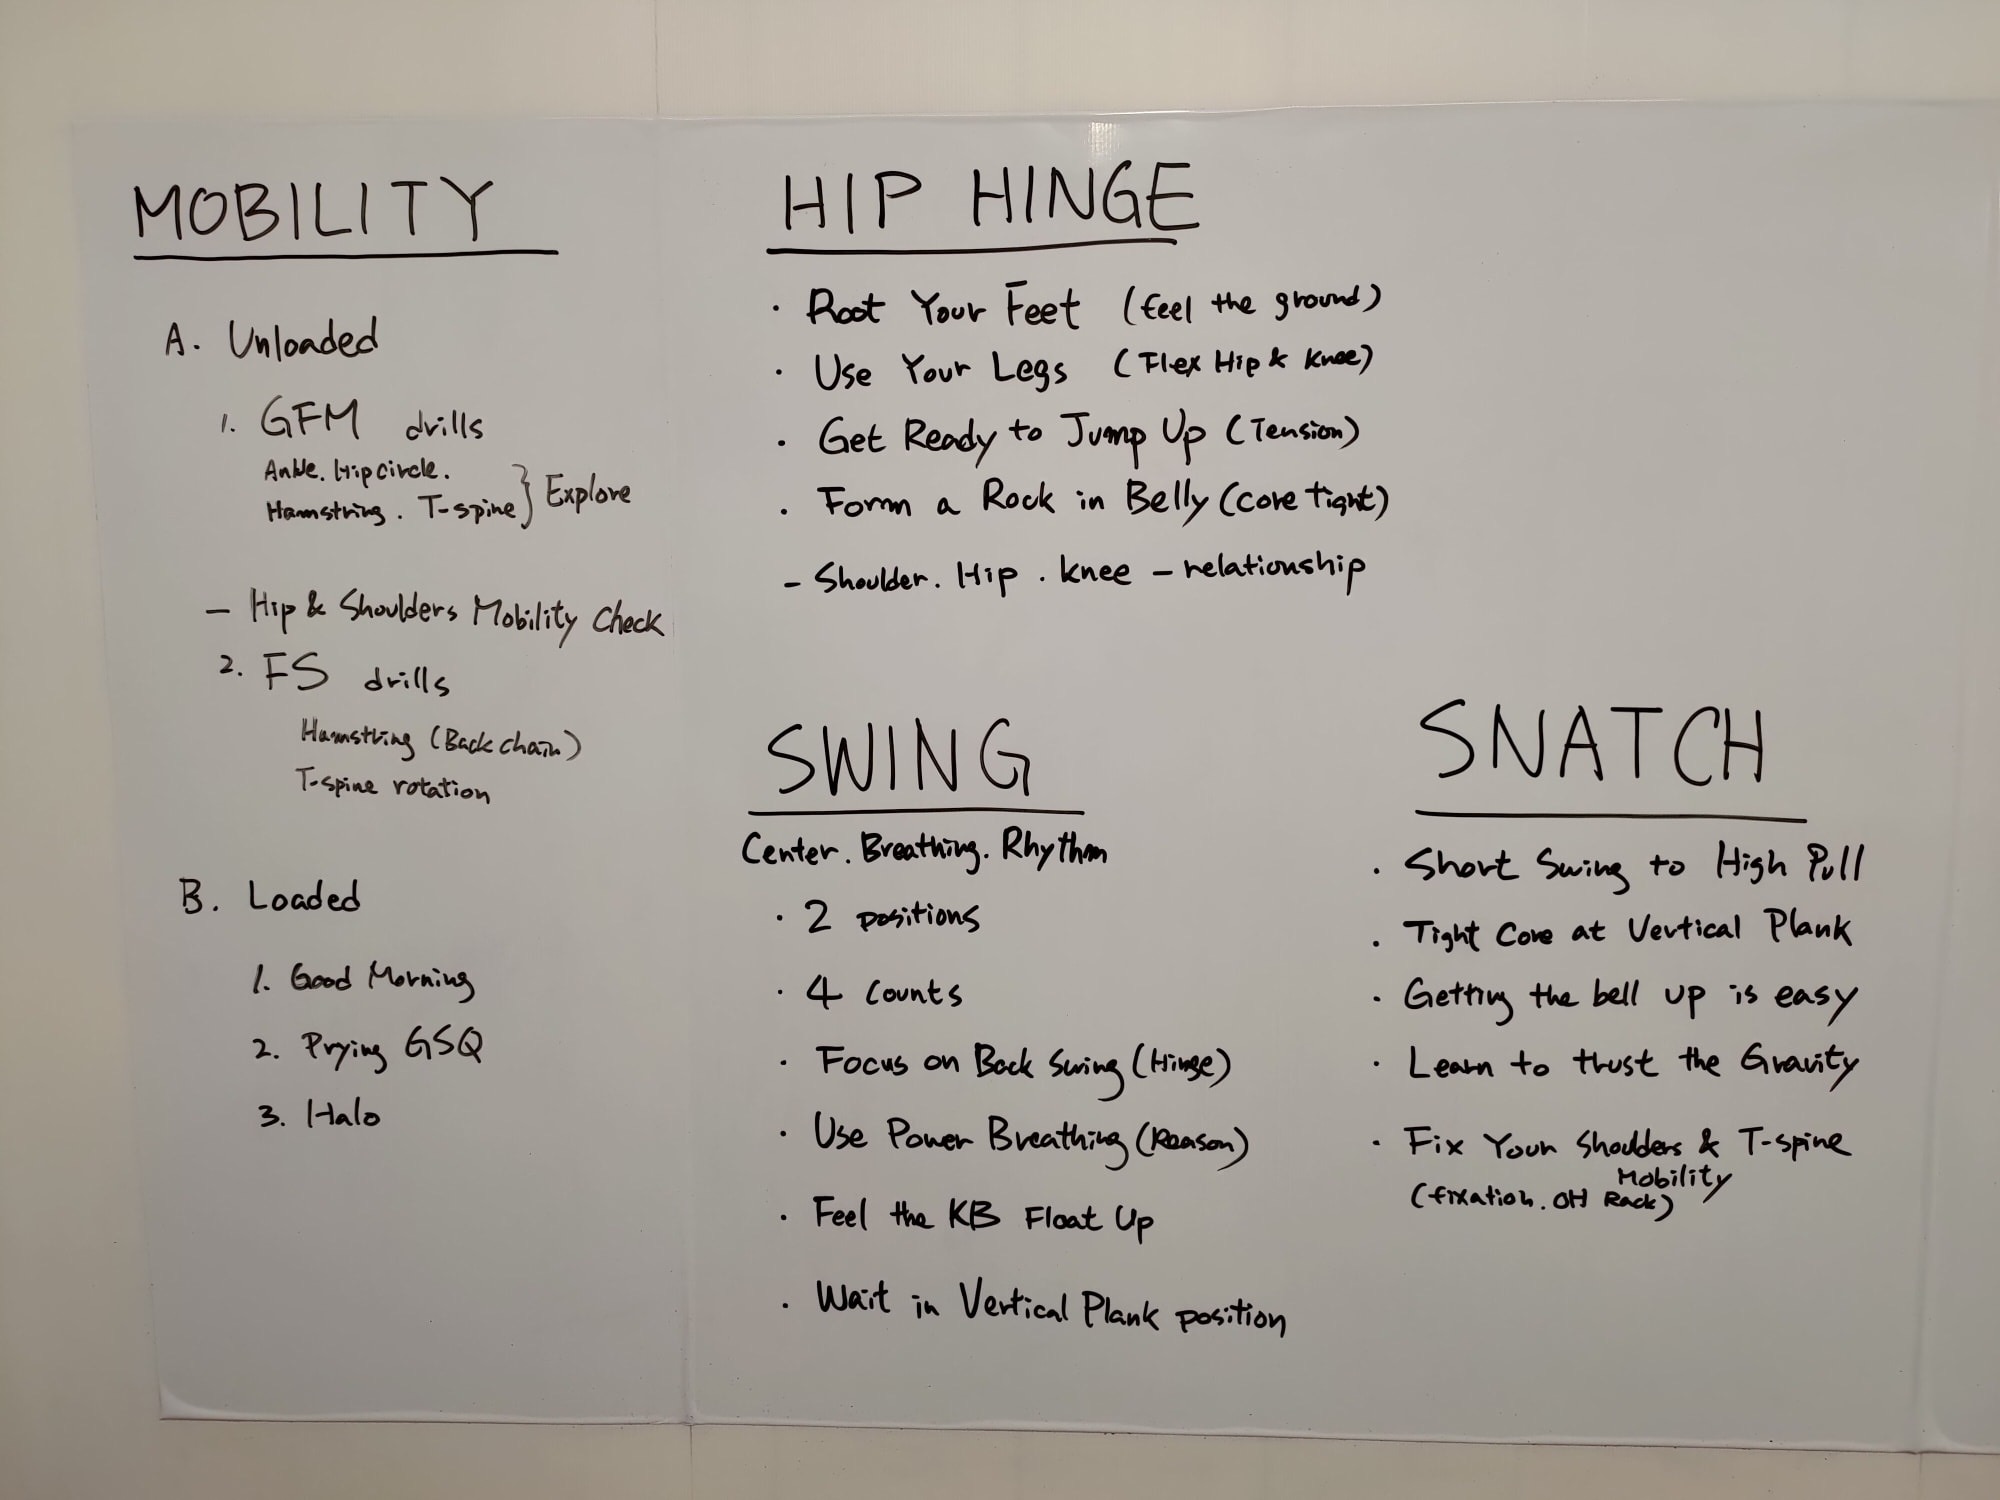 MOBILITY
A. Unloaded
1. GFM drills
Ankle. Hip circle.
Hamstring. T-spine } Explore
- Hip & Shoulders Mobility Check
2. FS drills
Hamstring (Back chain)
T-spine rotation
B. Loaded
1. Good Morning
2. Prying GSQ
3. Halo
HIP HINGE
· Root Your Feet (feel the ground)
· Use Your Legs (Flex Hip & Knee)
· Get Ready to Jump Up (Tension)
· Form a Rock in Belly (core tight)
- Shoulder. Hip. knee - relationship
SWING
Center. Breathing. Rhythm
· 2 positions
· 4 counts
· Focus on Back Swing (Hinge)
· Use Power Breathing (Reason)
· Feel the KB Float Up
· Wait in Vertical Plank position
SNATCH
· Short Swing to High Pull
· Tight Core at Vertical Plank
· Getting the bell up is easy
· Learn to trust the Gravity
· Fix Your Shoulders & T-spine
Mobility
(fixation. OH Rack)